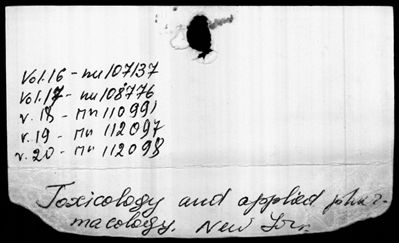 Vol.16 - пи 107137
Vol.17 - пи 108776
v. 18 - пи 110991
v. 19 - пи 112097
v. 20 - пи 112098
Toxicology and applied phar-
macology. New